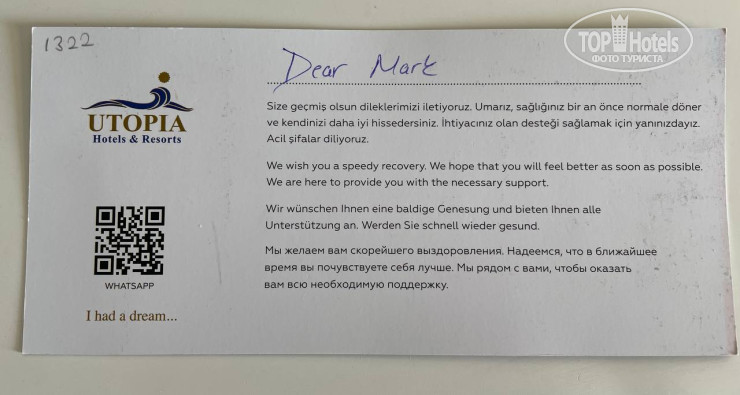 1322
TOP Hotels
ФОТО ТУРИСТА
Dear Mark
UTOPIA
Hotels & Resorts
Size geçmiş olsun dileklerimizi iletiyoruz. Umarız, sağlığınız bir an önce normale döner
ve kendinizi daha iyi hissedersiniz. İhtiyacınız olan desteği sağlamak için yanınızdayız.
Acil şifalar diliyoruz.
We wish you a speedy recovery. We hope that you will feel better as soon as possible.
We are here to provide you with the necessary support.
Wir wünschen Ihnen eine baldige Genesung und bieten Ihnen alle
Unterstützung an. Werden Sie schnell wieder gesund.
Мы желаем вам скорейшего выздоровления. Надеемся, что в ближайшее
время вы почувствуете себя лучше. Мы рядом с вами, чтобы оказать
вам всю необходимую поддержку.
WHATSAPP
I had a dream...